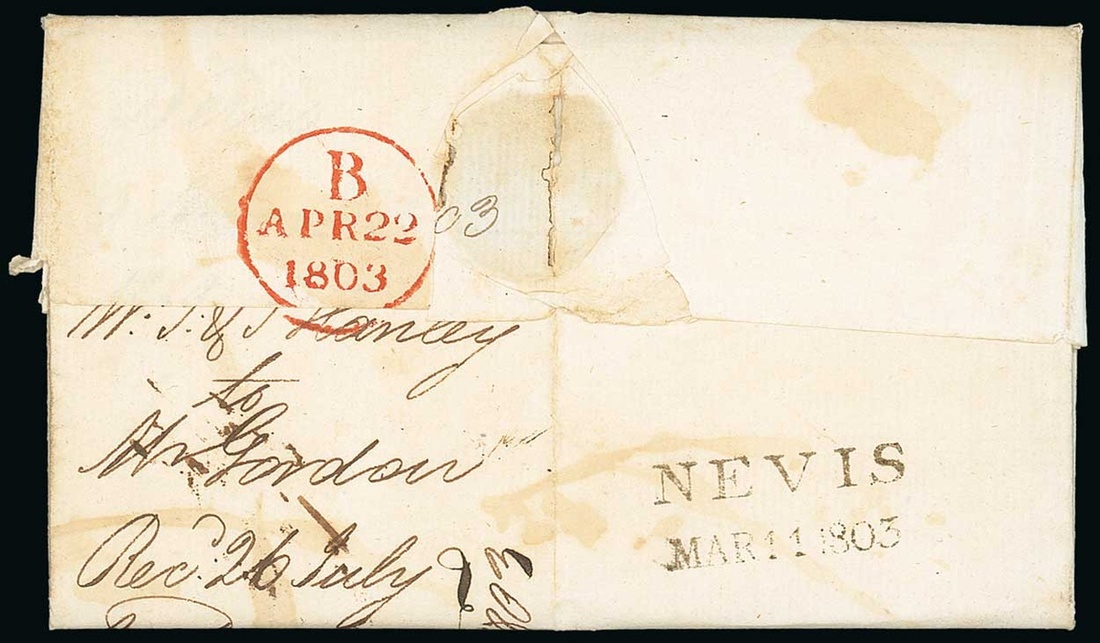 B
APR 22
1803
03
to
Mr Gordon
Rec.d 26 July
NEVIS
MAR 11 1803